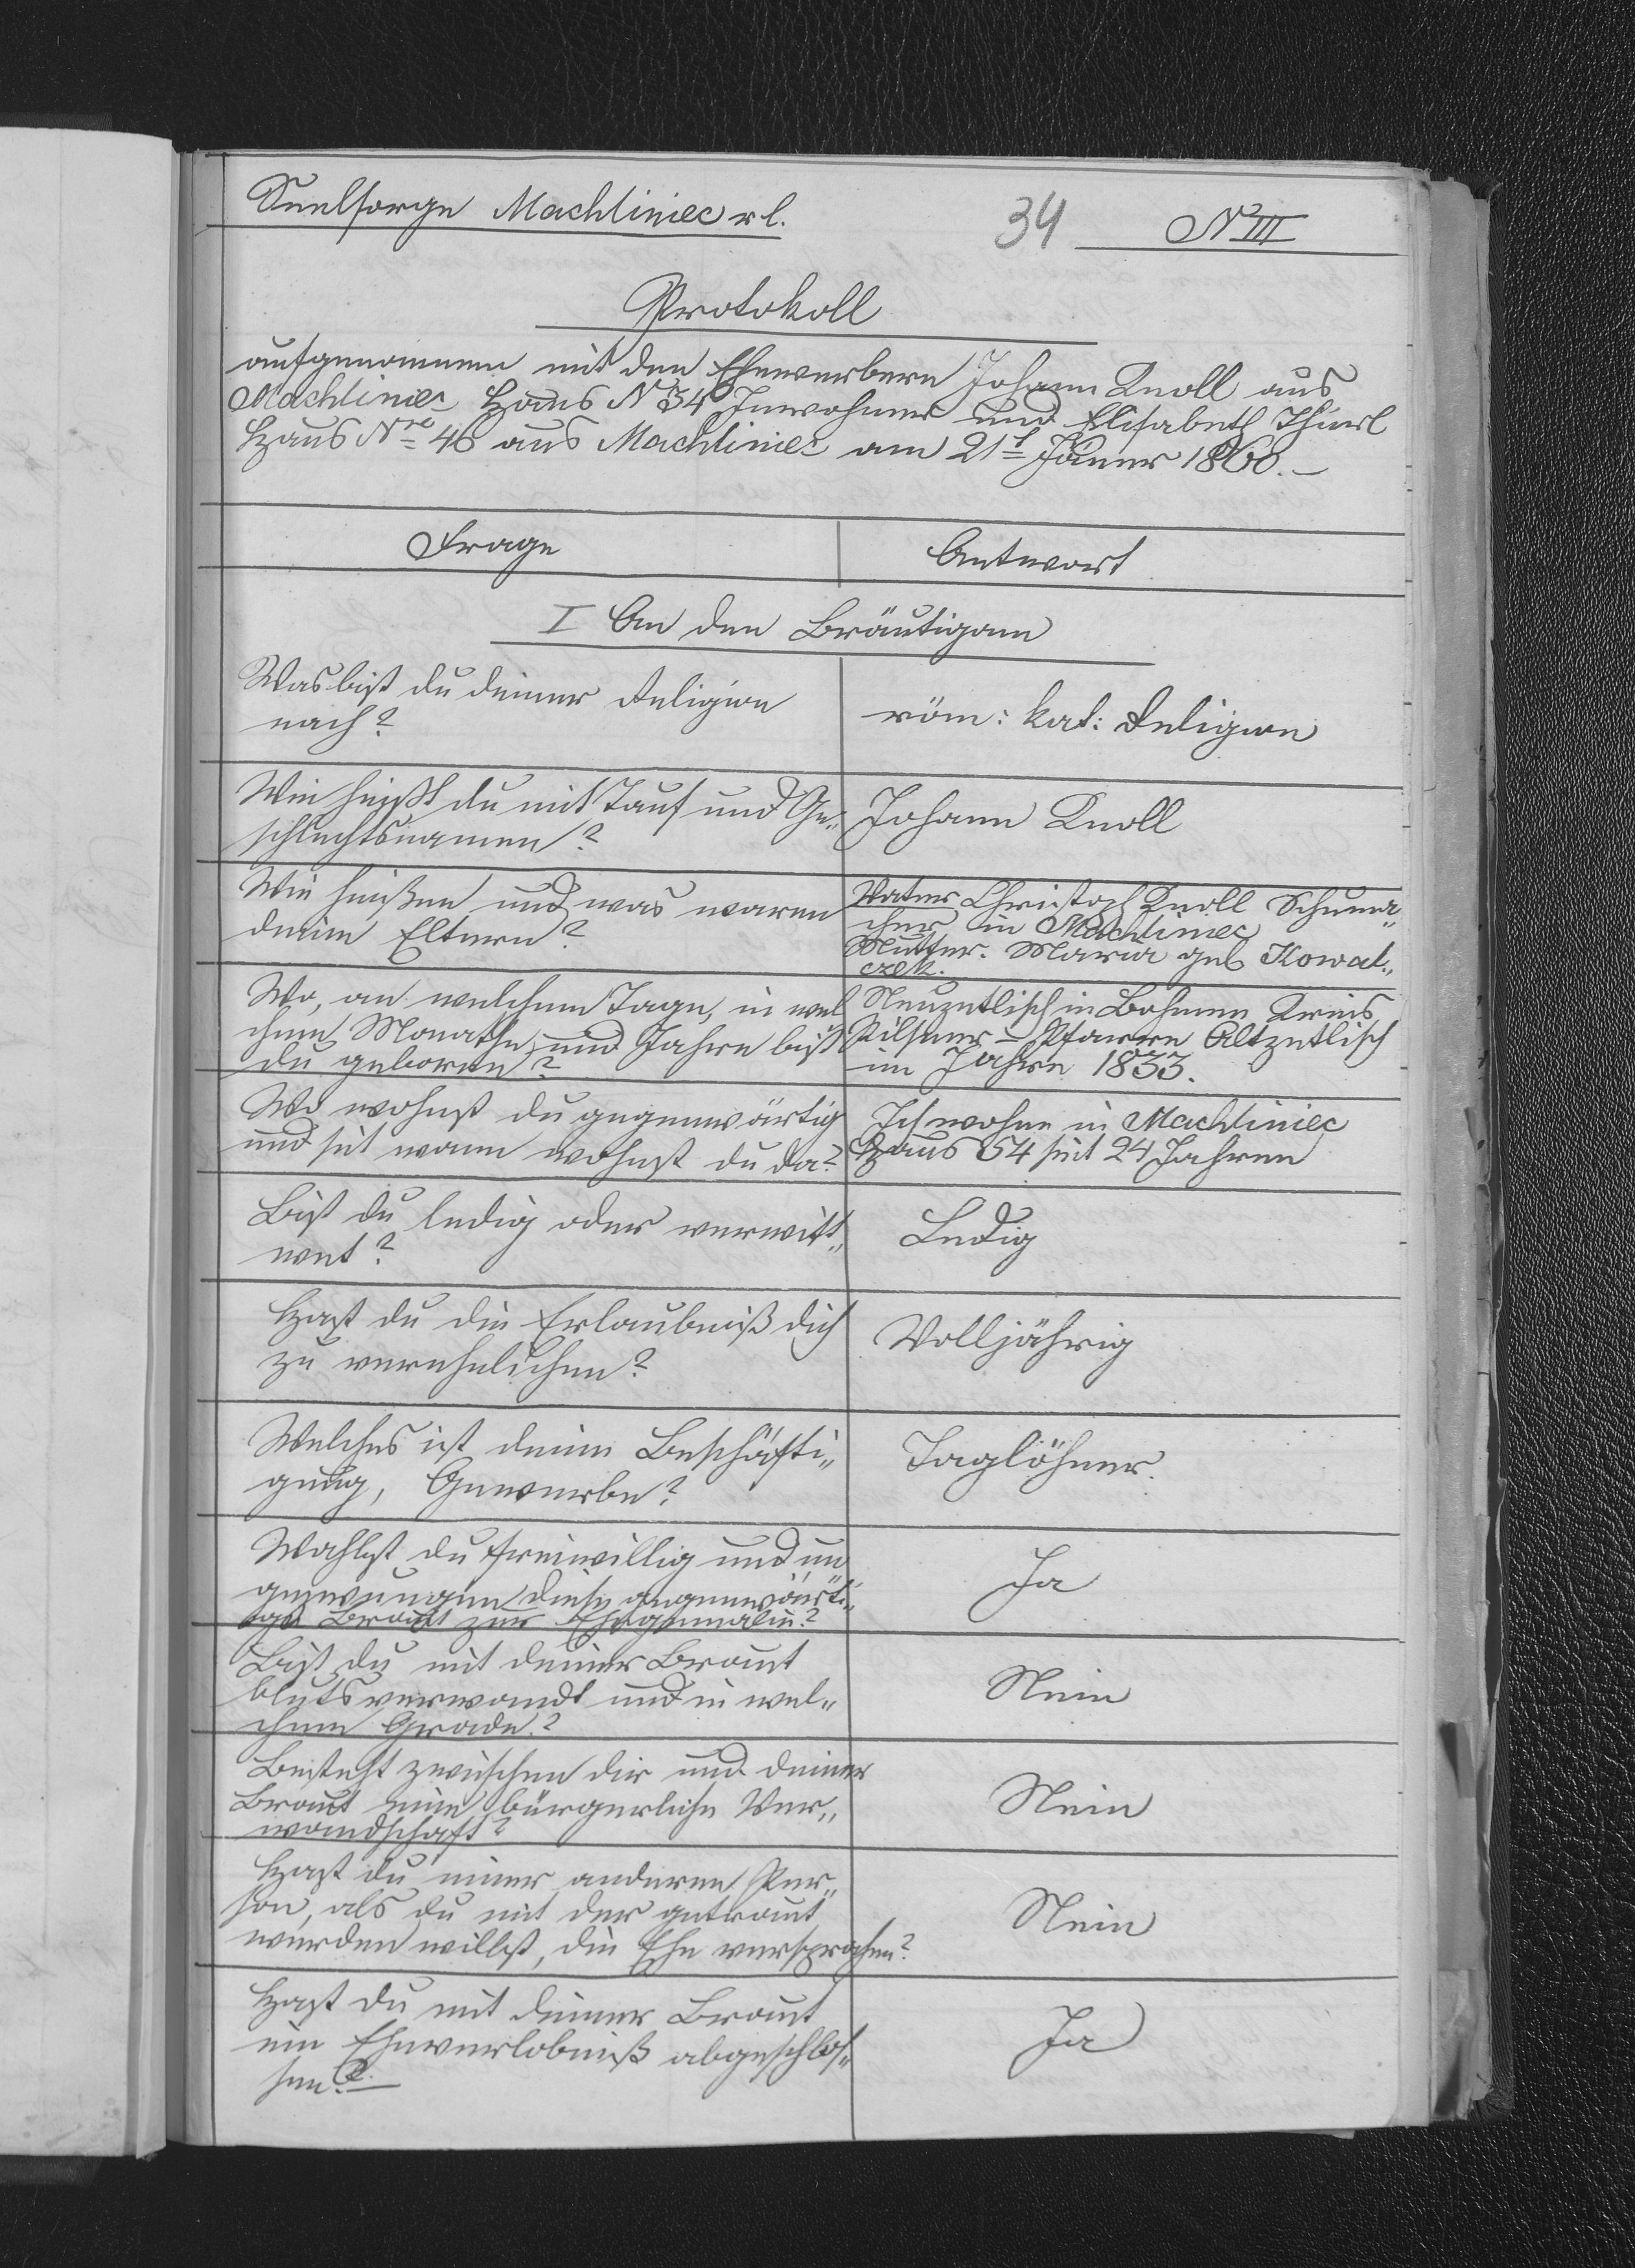 Seelsorge Machliniec rl.
34
N III
Protokoll
aufgenommen mit den Ehewerbern Johann Knoll aus
Machliniec Haus N 54 Inwohner und Elisabeth Thürl
Haus Nro 46 aus Machliniec am 21t Jäner 1860.-
Frage
Antwort
I An den Bräutigam
Was bist du deiner Religion
nach?
röm: kat: Religion
Wie heißt du mit Tauf und Ge„
schlechtsnamen?
Johann Knoll
Wie heißen und was waren
deine Eltern?
Vater Christoph Knoll Schuma„
cher in Machliniec
Mutter. Maria geb Kowal„
czek.
Wo, an welchem Tage, in wel
chem Monathe, und Jahre bist
du geboren?
Neuzetlisch in Bohmen Kreis
Pilsner - Pfarre Altzetlisch
im Jahre 1833.
Wo wohnst du gegenwärtig
und seit wann wohnst du da?
Ich wohne in Machliniec
Haus 54 seit 24 Jahren
Bist du ledig oder verwitt„
wet?
Ledig
Hast du die Erlaubniß dich
zu verehelichen?
Volljährig
Welches ist deine Beschäfti„
gung, Gewerbe?
Taglöhner.
Wahlst du freiwillig und un
gezwungen diese gegenwärti„
ge Braut zur Ehegemalin?
Ja
Bist du mit deiner Braut
blutsverwandt und in wel„
chem Grade?
Nein
Besteht zwischen dir und deiner
Braut eine bürgerliche Ver„
wandschaft?
Nein
Hast du einer anderen Per„
son, als du mit der getraut
werden willst, die Ehe versprochen?
Nein
Hast du mit deiner Braut
ein Eheverlobniß abgeschlos„
sen?
Ja